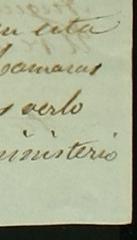 en esta
Camaras
verlo
ministerio